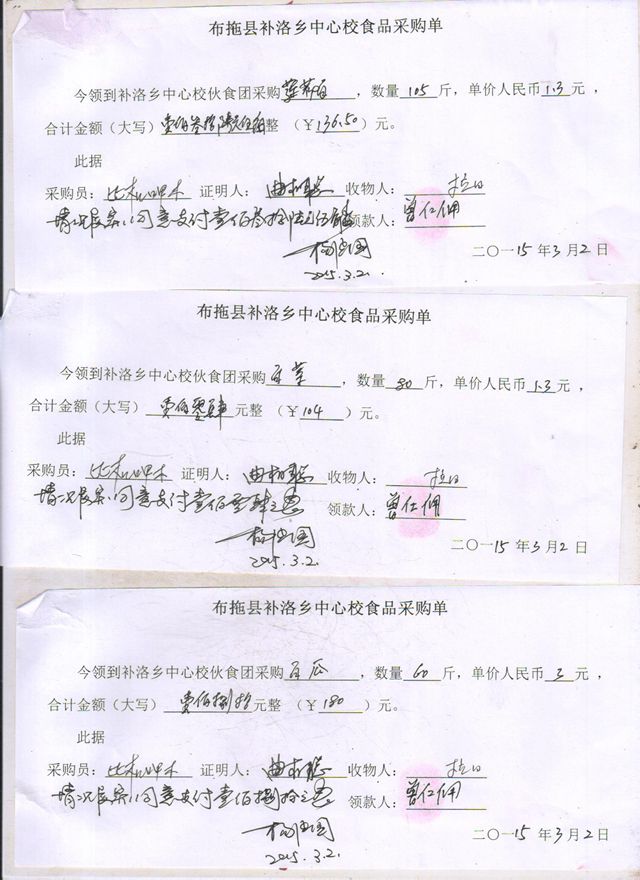 布拖县补洛乡中心校食品采购单
今领到补洛乡中心校伙食团采购，数量 105 斤，单价人民币 1.3 元，
合计金额（大写）壹佰叁拾陆元伍角整（￥136.50）元。
此据
采购员： 证明人： 收物人：拉日
情况属实，同意支付壹佰叁拾陆元伍角 领款人：曾仁佣
2015.3.2. 二〇一15年3月2日
布拖县补洛乡中心校食品采购单
今领到补洛乡中心校伙食团采购白菜，数量 80 斤，单价人民币 1.3 元，
合计金额（大写）壹佰零肆元整（￥104）元。
此据
采购员： 证明人： 收物人：拉日
情况属实，同意支付壹佰零肆元 领款人：曾仁佣
2015.3.2. 二〇一15年3月2日
布拖县补洛乡中心校食品采购单
今领到补洛乡中心校伙食团采购白瓜，数量 60 斤，单价人民币 3 元，
合计金额（大写）壹佰捌拾元整（￥180）元。
此据
采购员： 证明人： 收物人：拉日
情况属实，同意支付壹佰捌拾元 领款人：曾仁佣
2015.3.2. 二〇一15年3月2日